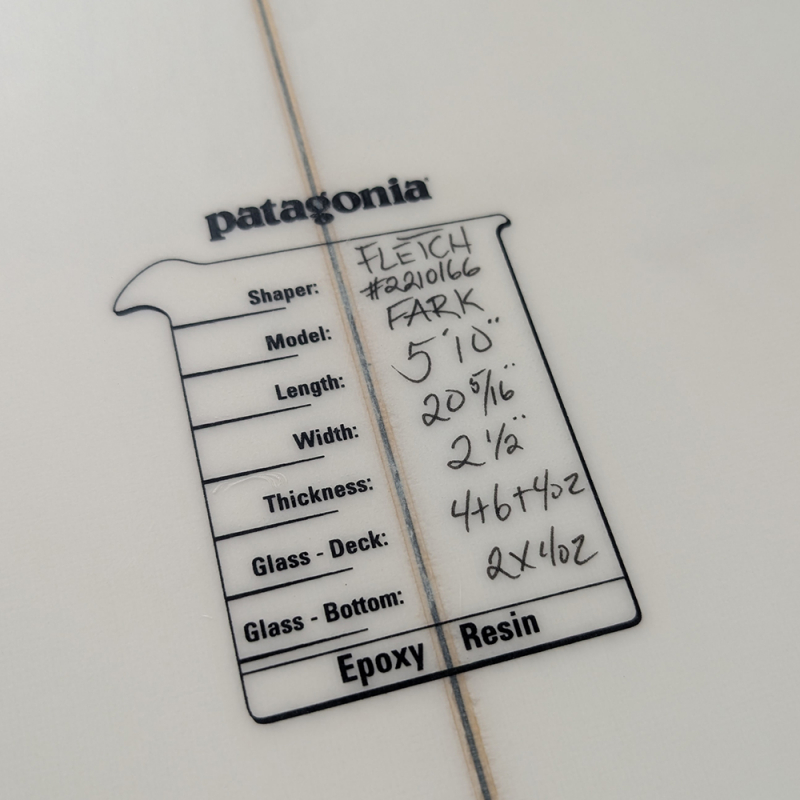 patagonia
Shaper: FLETCH
#2210166
Model: FARK
Length: 5'10"
Width: 20 5/16"
Thickness: 2 1/2"
Glass - Deck: 4+6+4oz
Glass - Bottom: 2X4oz
Epoxy Resin